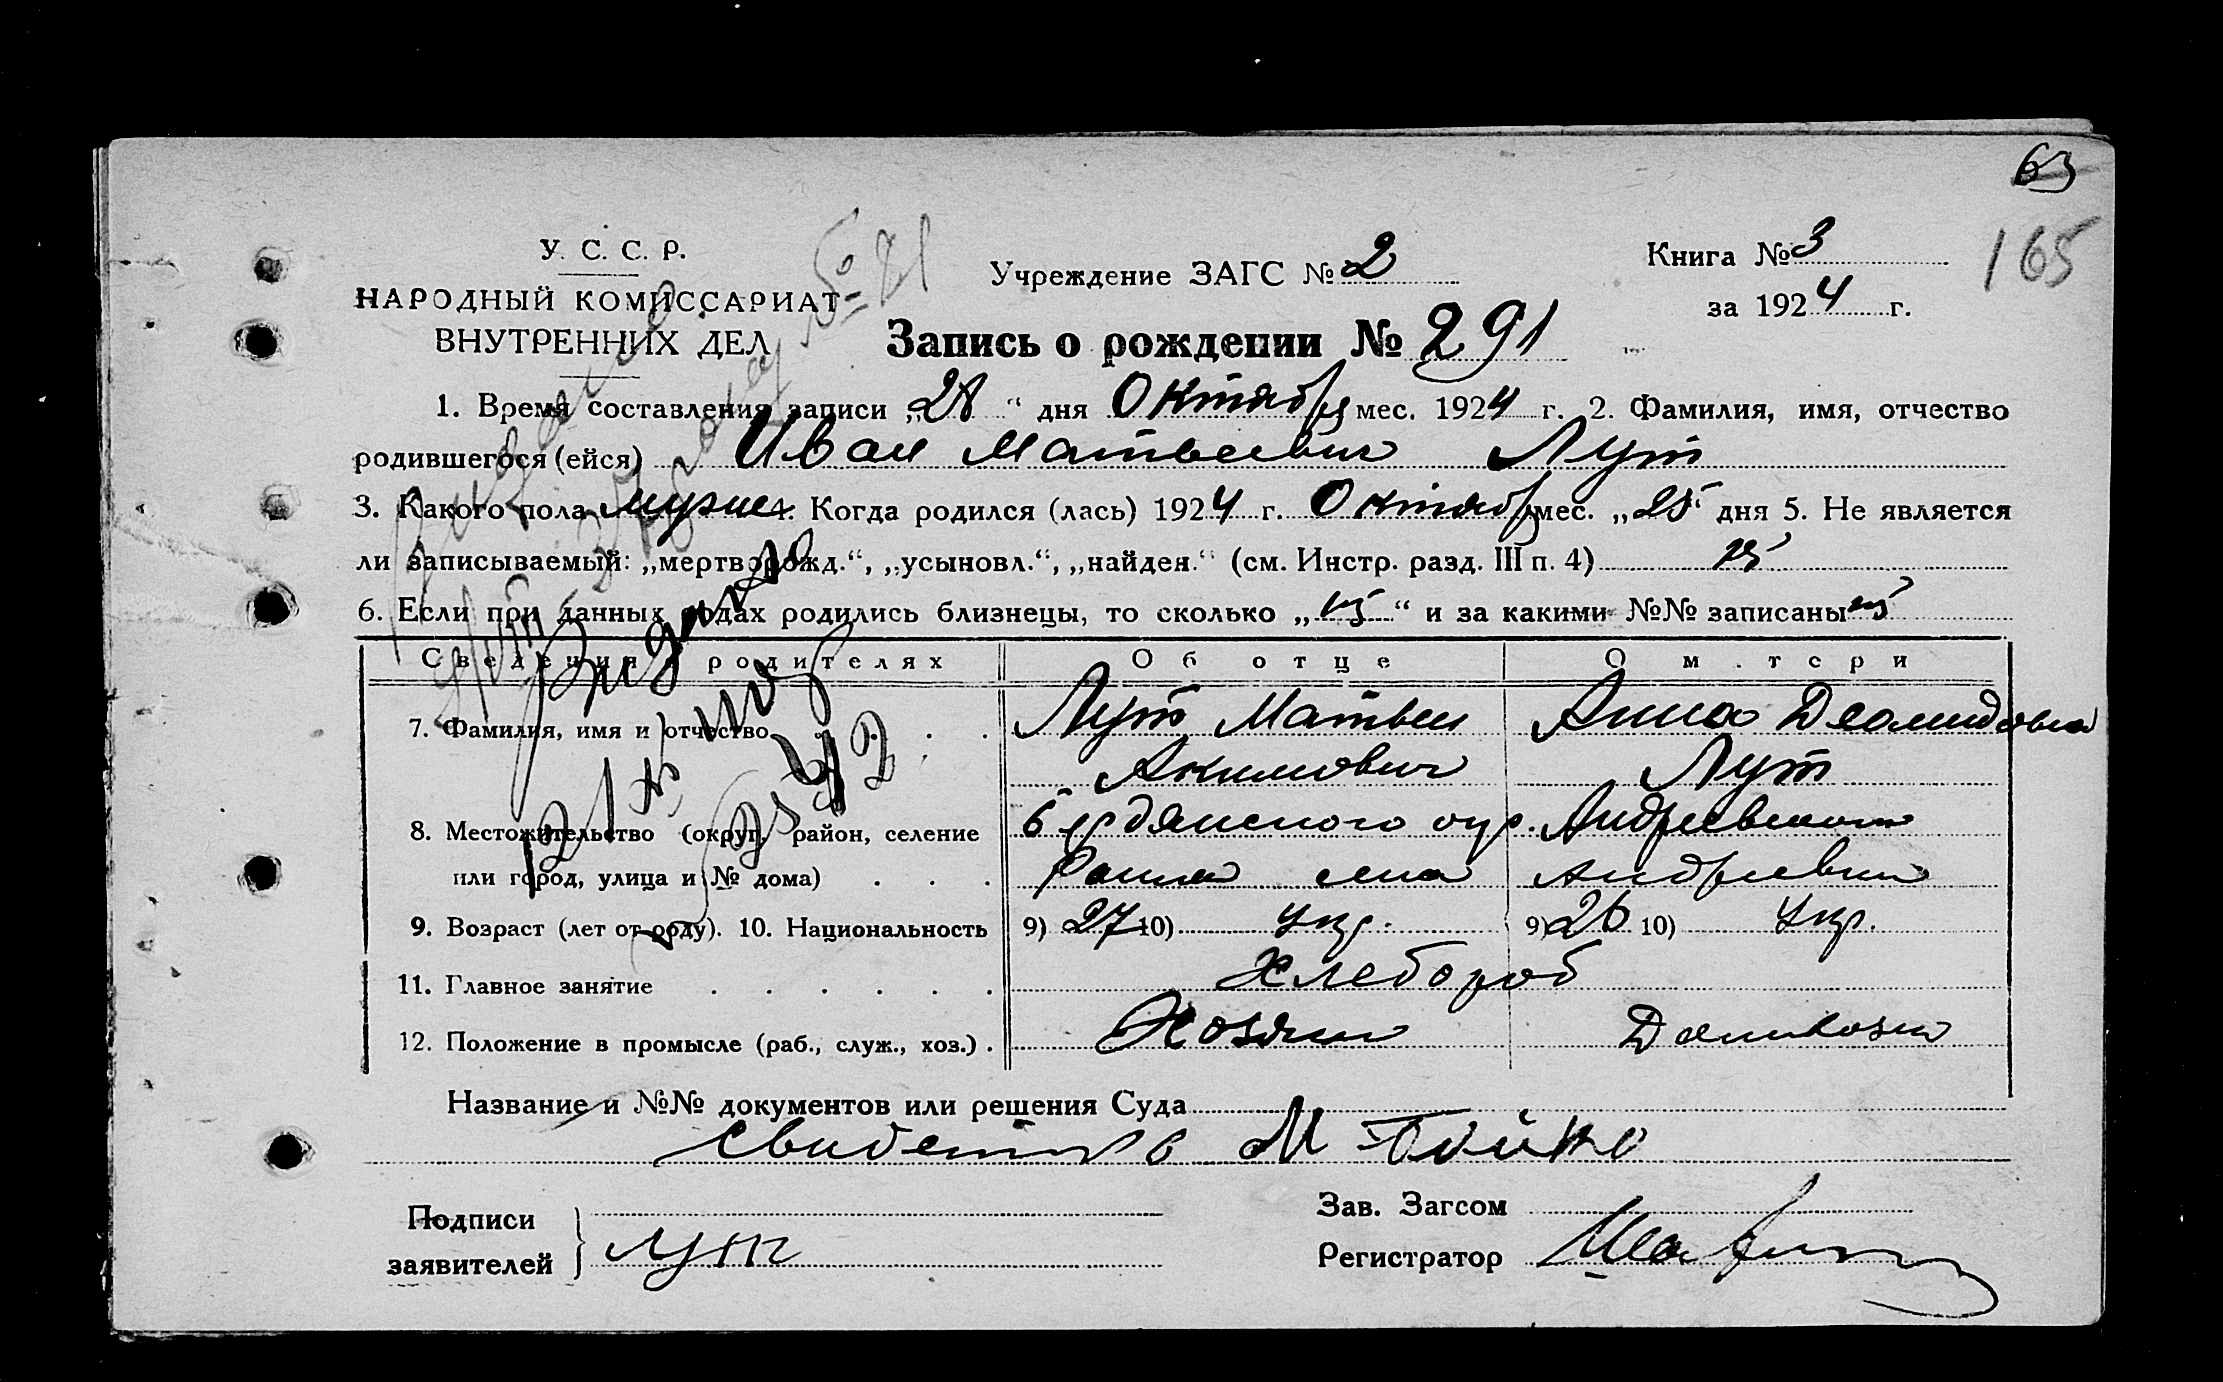 63
165
У. С. С. Р.
НАРОДНЫЙ КОМИССАРИАТ
ВНУТРЕННИХ ДЕЛ
Учреждение ЗАГС № 2
Книга № 3
за 1924 г.
Запись о рождении № 291
1. Время составления записи „28“ дня Октября мес. 1924 г. 2. Фамилия, имя, отчество
родившегося (ейся) Иван Матвеевич Лут
3. Какого пола мужск 4. Когда родился (лась) 1924 г. Октября мес. „25“ дня 5. Не является
ли записываемый: „мертворожд.“, „усыновл.“, „найден.“ (см. Инстр. разд. III п. 4)
6. Если при данных родах родились близнецы, то сколько „ “ и за какими №№ записаны
Сведения о родителях Об отце О матери
7. Фамилия, имя и отчество Лут Матвей Анна Деомидовна
Акимович Лут
8. Местожительство (округ, район, селение Бердянского окр. Андреевского
или город, улица и № дома) села Андреевки
9. Возраст (лет от роду). 10. Национальность 9) 27 10) Укр. 9) 26 10) Укр.
11. Главное занятие Хлебороб
12. Положение в промысле (раб., служ., хоз.) Хозяин Домхоз
Название и №№ документов или решения Суда
М Бойко
Подписи
заявителей Лут
Зав. Загсом
Регистратор